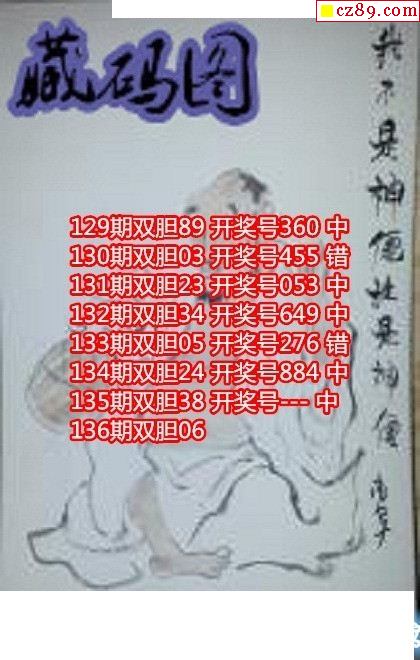 cz89.com
藏码图
我不是神仙也是神仙
129期双胆89 开奖号360 中
130期双胆03 开奖号455 错
131期双胆23 开奖号053 中
132期双胆34 开奖号649 中
133期双胆05 开奖号276 错
134期双胆24 开奖号884 中
135期双胆38 开奖号--- 中
136期双胆06